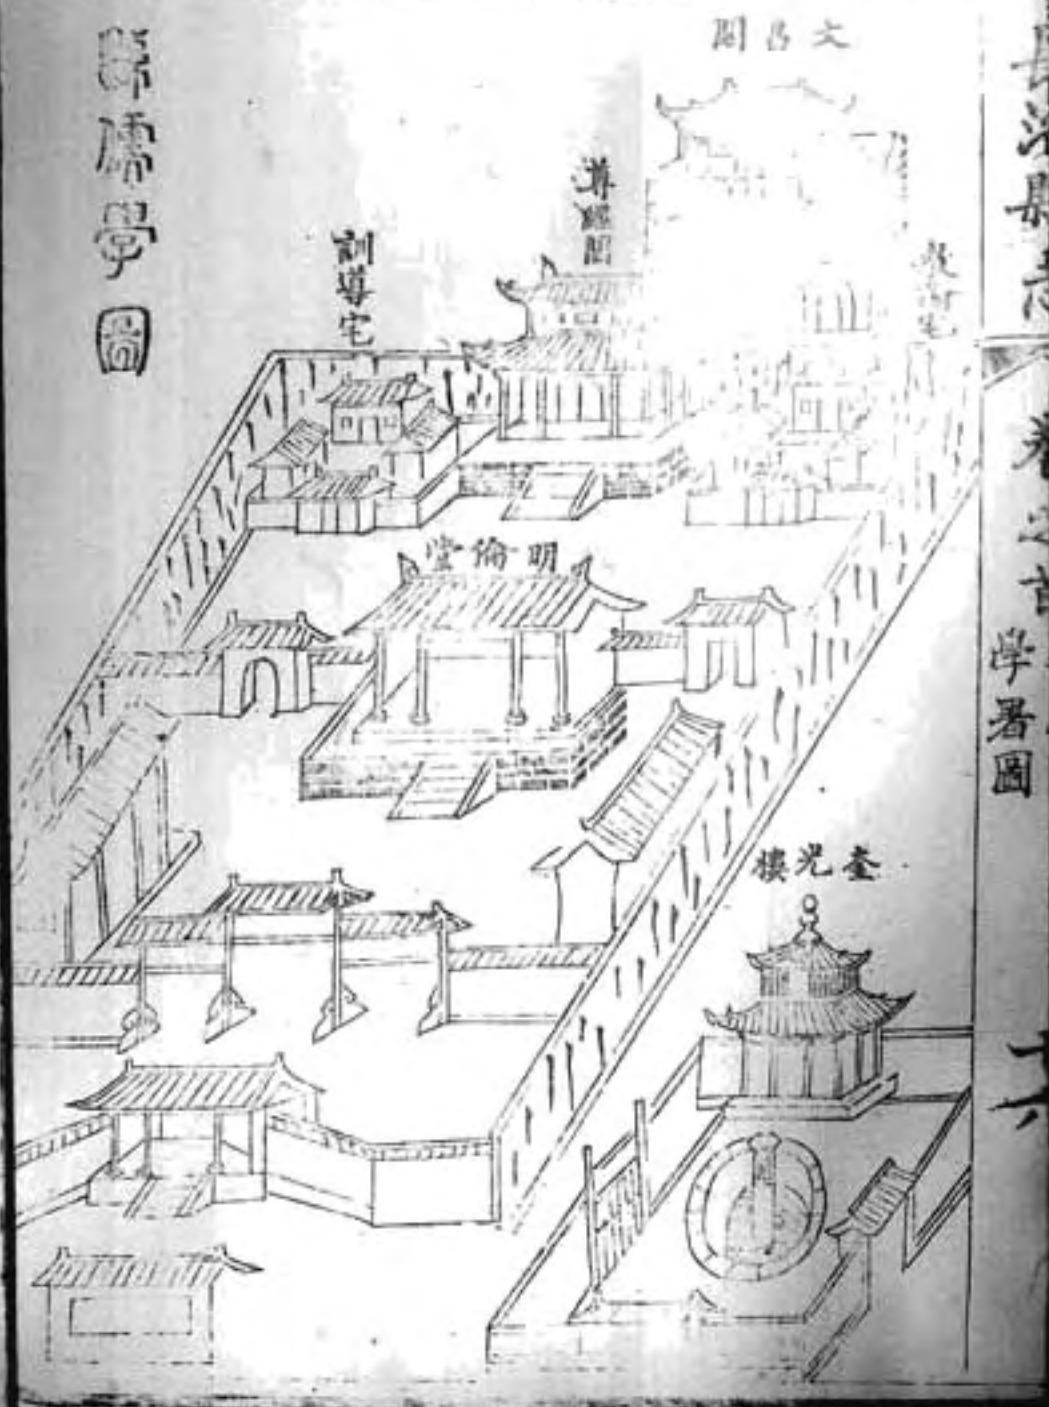 長治縣志
卷之首
學署圖
十六
縣儒學圖
文昌閣
尊經閣
訓導宅
明倫堂
奎光樓